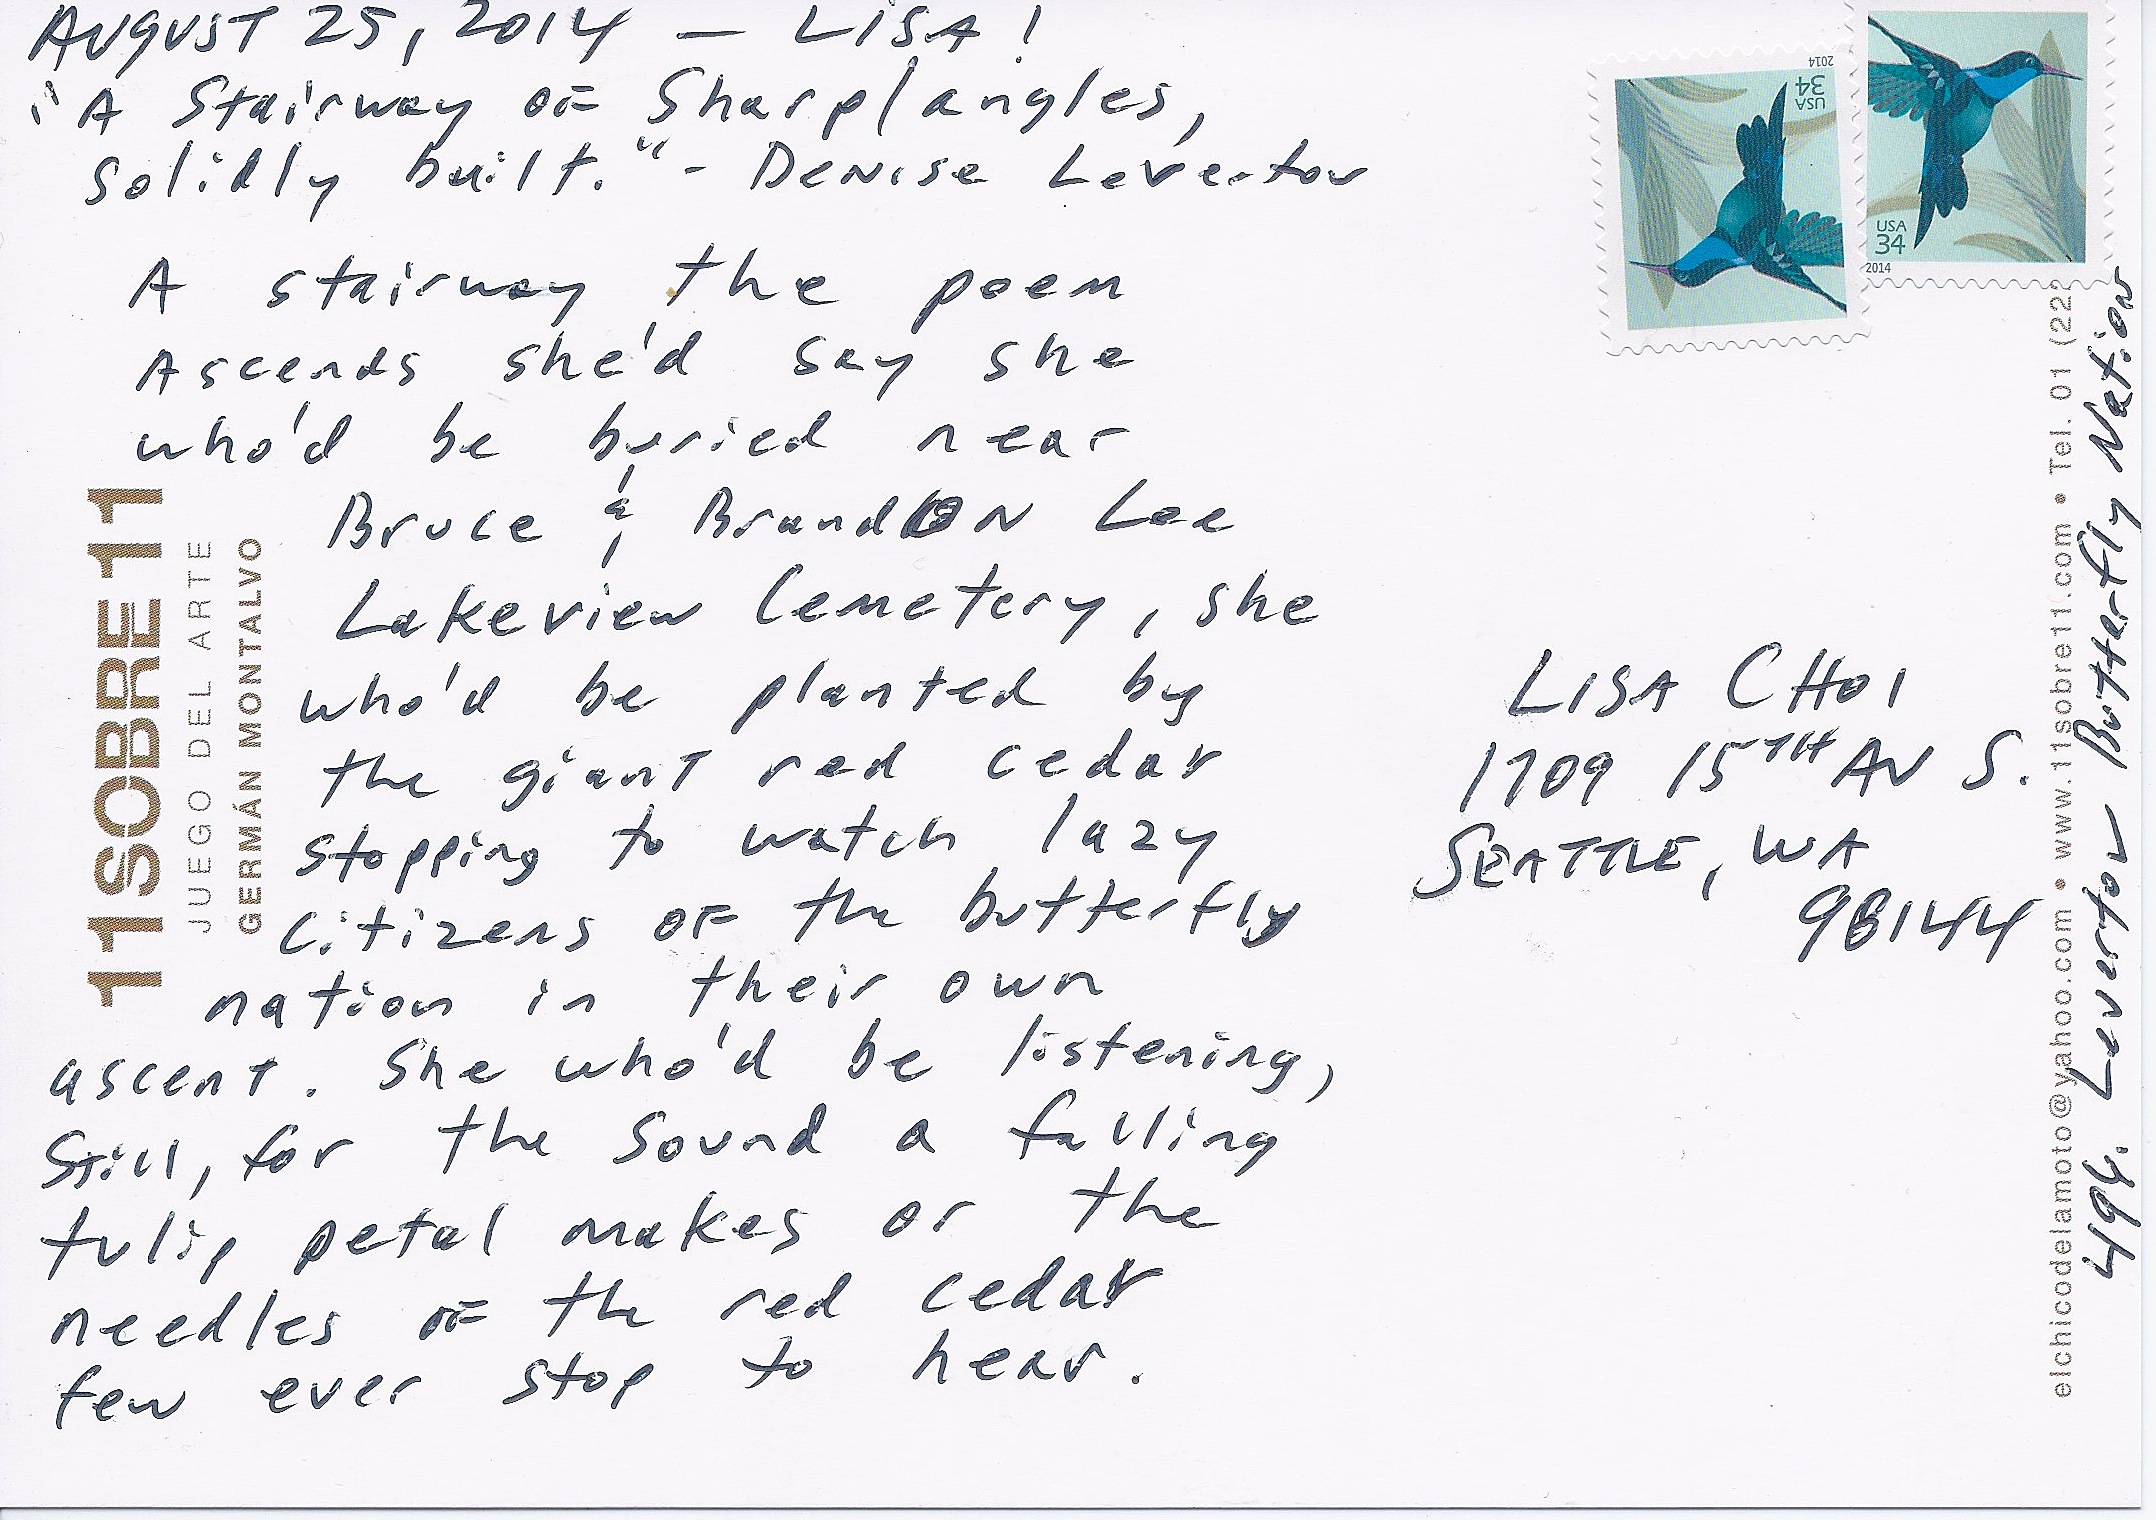 AUGUST 25, 2014 — LISA!
"A Stairway of Sharp/angles,
solidly built." - Denise Levertov
A stairway the poem
Ascends she'd say she
who'd be buried near
Bruce & BrandON Lee
Lakeview Cemetery, she
who'd be planted by
the giant red cedar
stopping to watch lazy
citizens of the butterfly
nation in their own
ascent. She who'd be listening,
still, for the sound a falling
tulip petal makes or the
needles of the red cedar
few ever stop to hear.
11SOBRE11
JUEGO DEL ARTE
GERMÁN MONTALVO
USA
34
2014
USA
34
2014
LISA CHOI
1709 15TH AV S.
SEATTLE, WA
98144
elchicodelamoto@yahoo.com • www.11sobre11.com • Tel. 01 (222
494. Levertov Butterfly Nation